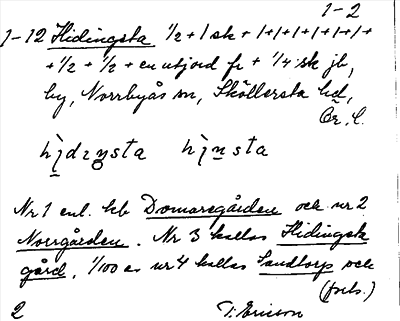 1-2
1-12 Hidingsta 1/2 + 1 sk + 1+1+1+1+1+1+
+ 1/2 + 1/2 + en utjord fr + 1/4 sk jb,
by, Norrbyås sn, Sköllersta hd,
Ör. l.
hìdiŋsta hìnsta
Nr 1 enl. kb Domaregården och nr 2
Norrgården. Nr 3 kallas Hidingsta
gård, 1/100 av nr 4 kallas Sandtorp och
(forts.)
2 T. Ericson